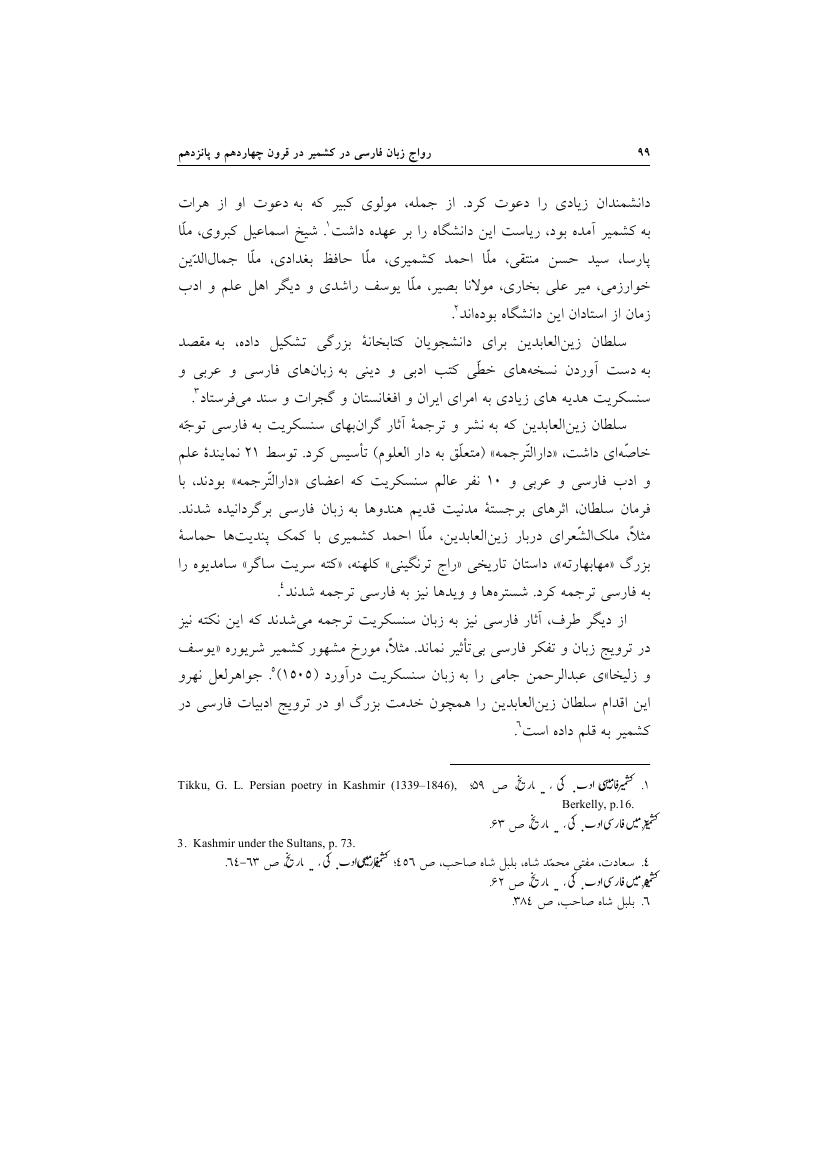 ۹۹ رواج زبان فارسی در کشمیر در قرون چهاردهم و پانزدهم
دانشمندان زیادی را دعوت کرد. از جمله، مولوی کبیر که به دعوت او از هرات
به کشمیر آمده بود، ریاست این دانشگاه را بر عهده داشت۱. شیخ اسماعیل کبروی، ملّا
پارسا، سید حسن منتقی، ملّا احمد کشمیری، ملّا حافظ بغدادی، ملّا جمال‌الدّین
خوارزمی، میر علی بخاری، مولانا بصیر، ملّا یوسف راشدی و دیگر اهل علم و ادب
زمان از استادان این دانشگاه بوده‌اند۲.
سلطان زین‌العابدین برای دانشجویان کتابخانهٔ بزرگی تشکیل داده، به مقصد
به دست آوردن نسخه‌های خطّی کتب ادبی و دینی به زبان‌های فارسی و عربی و
سنسکریت هدیه های زیادی به امرای ایران و افغانستان و گجرات و سند می‌فرستاد۳.
سلطان زین‌العابدین که به نشر و ترجمهٔ آثار گران‌بهای سنسکریت به فارسی توجّه
خاصّه‌ای داشت، «دارالتّرجمه» (متعلّق به دار العلوم) تأسیس کرد. توسط ۲۱ نمایندهٔ علم
و ادب فارسی و عربی و ۱۰ نفر عالم سنسکریت که اعضای «دارالتّرجمه» بودند، با
فرمان سلطان، اثرهای برجستهٔ مدنیت قدیم هندوها به زبان فارسی برگردانیده شدند.
مثلاً، ملک‌الشّعرای دربار زین‌العابدین، ملّا احمد کشمیری با کمک پندیت‌ها حماسهٔ
بزرگ «مهابهارته»، داستان تاریخی «راج ترنگینی» کلهنه، «کته سریت ساگر» سامدیوه را
به فارسی ترجمه کرد. شستره‌ها و ویدها نیز به فارسی ترجمه شدند٤.
از دیگر طرف، آثار فارسی نیز به زبان سنسکریت ترجمه می‌شدند که این نکته نیز
در ترویج زبان و تفکر فارسی بی‌تأثیر نماند. مثلاً، مورخ مشهور کشمیر شریوره «یوسف
و زلیخا»ی عبدالرحمن جامی را به زبان سنسکریت درآورد (۱۵۰۵)۵. جواهرلعل نهرو
این اقدام سلطان زین‌العابدین را همچون خدمت بزرگ او در ترویج ادبیات فارسی در
کشمیر به قلم داده است٦.
۱. کشمیر ادب کی تاریخ، ص ۵۹؛ Tikku, G. L. Persian poetry in Kashmir (1339–1846),
Berkelly, p.16.
کشمیر میں فارسی ادب کی تاریخ، ص ۶۳.
3. Kashmir under the Sultans, p. 73.
٤. سعادت، مفتی محمّد شاه، بلبل شاه صاحب، ص ٤٥٦؛ ادب کی تاریخ، ص ٦٣–٦٤.
کشمیر میں فارسی ادب کی تاریخ، ص ۶۲.
٦. بلبل شاه صاحب، ص ۳۸٤.